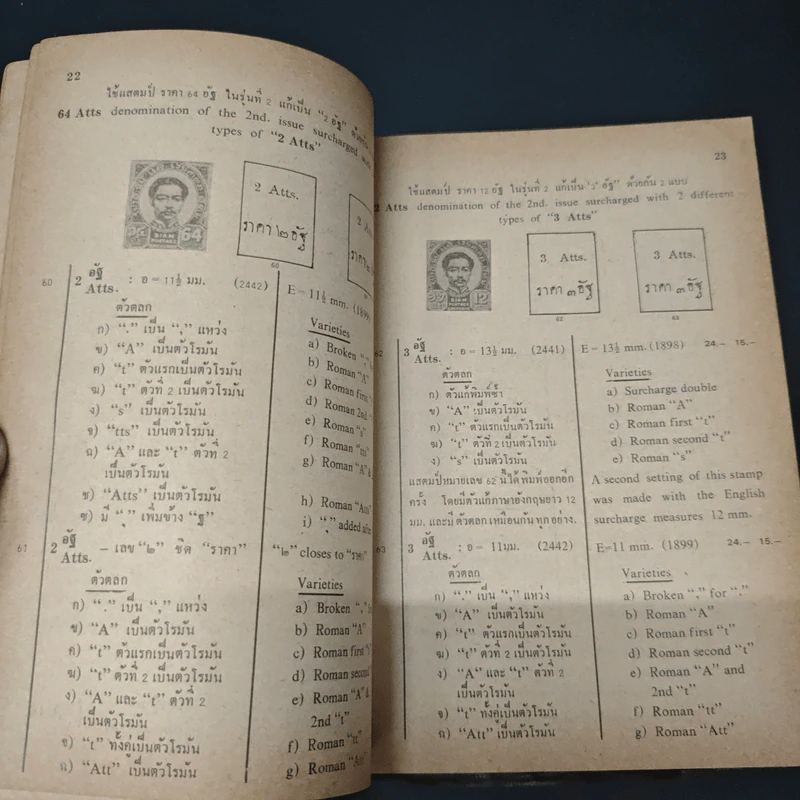 22
ใช้แสตมป์ ราคา 64 อัฐ ในรุ่นที่ 2 แก้เป็น "2 อัฐ"
64 Atts denomination of the 2nd. issue surcharged with
types of "2 Atts"
64
SIAM
2 Atts.
ราคา ๒ อัฐ
60
60 2 อัฐ Atts. : อ = 11½ มม. (2442) E = 11½ mm. (1899)
ตัวตลก Varieties
ก) "." เป็น "," แหว่ง a) Broken "."
ข) "A" เป็นตัวโรมัน b) Roman "A"
ค) "t" ตัวแรกเป็นตัวโรมัน c) Roman first
ฆ) "t" ตัวที่ 2 เป็นตัวโรมัน d) Roman 2nd.
ง) "s" เป็นตัวโรมัน e) Roman "s"
จ) "tts" เป็นตัวโรมัน f) Roman "tts"
ฉ) "A" และ "t" ตัวที่ 2 g) Roman "A" &
เป็นตัวโรมัน
ช) "Atts" เป็นตัวโรมัน h) Roman "Atts"
ซ) มี "," เพิ่มข้าง "ฐ" i) "," added after
61 2 อัฐ Atts. – เลข "๒" ชิด "ราคา" "๒" closes to "ราคา"
ตัวตลก Varieties
ก) "." เป็น "," แหว่ง a) Broken "."
ข) "A" เป็นตัวโรมัน b) Roman "A"
ค) "t" ตัวแรกเป็นตัวโรมัน c) Roman first
ฆ) "t" ตัวที่ 2 เป็นตัวโรมัน d) Roman second
ง) "A" และ "t" ตัวที่ 2 e) Roman "A" &
เป็นตัวโรมัน 2nd "t"
จ) "t" ทั้งคู่เป็นตัวโรมัน f) Roman "tt"
ฉ) "Att" เป็นตัวโรมัน g) Roman "Att"
23
ใช้แสตมป์ ราคา 12 อัฐ ในรุ่นที่ 2 แก้เป็น "3 อัฐ" ด้วยกัน 2 แบบ
2 Atts denomination of the 2nd. issue surcharged with 2 different
types of "3 Atts"
12
SIAM
3 Atts.
ราคา ๓ อัฐ
62
3 Atts.
ราคา ๓ อัฐ
63
62 3 อัฐ Atts. : อ = 13½ มม. (2441) E = 13½ mm. (1898) 24.– 15.–
ตัวตลก Varieties
ก) ตัวแก้พิมพ์ซ้ำ a) Surcharge double
ข) "A" เป็นตัวโรมัน b) Roman "A"
ค) "t" ตัวแรกเป็นตัวโรมัน c) Roman first "t"
ฆ) "t" ตัวที่ 2 เป็นตัวโรมัน d) Roman second "t"
ง) "s" เป็นตัวโรมัน e) Roman "s"
แสตมป์หมายเลข 62 นี้ได้พิมพ์ออกอีก A second setting of this stamp
ครั้ง โดยมีตัวแก้ภาษาอังกฤษยาว 12 was made with the English
มม. และมีตัวตลกเหมือนกันทุกอย่าง. surcharge measures 12 mm.
63 3 อัฐ Atts. : อ = 11 มม. (2442) E=11 mm. (1899) 24.– 15.–
ตัวตลก Varieties
ก) "." เป็น "," แหว่ง a) Broken "." for "."
ข) "A" เป็นตัวโรมัน b) Roman "A"
ค) "t" ตัวแรกเป็นตัวโรมัน c) Roman first "t"
ฆ) "t" ตัวที่ 2 เป็นตัวโรมัน d) Roman second "t"
ง) "A" และ "t" ตัวที่ 2 e) Roman "A" and
เป็นตัวโรมัน 2nd "t"
จ) "t" ทั้งคู่เป็นตัวโรมัน f) Roman "tt"
ฉ) "Att" เป็นตัวโรมัน g) Roman "Att"